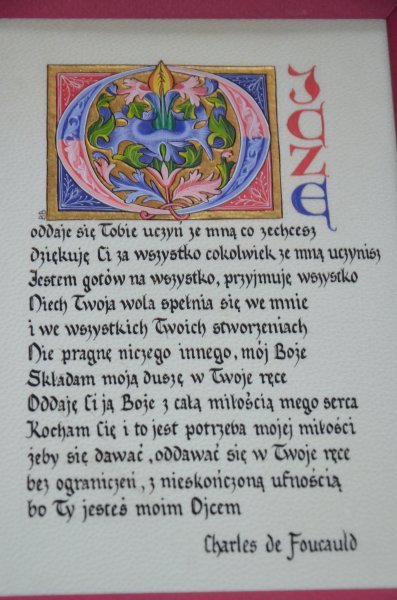 OJCZE
oddaje się Tobie uczyń ze mną co zechcesz
dziękuję Ci za wszystko cokolwiek ze mną uczynisz
Jestem gotów na wszystko, przyjmuję wszystko
Niech Twoja wola spełnia się we mnie
i we wszystkich Twoich stworzeniach
Nie pragnę niczego innego, mój Boże
Składam moją duszę w Twoje ręce
Oddaję Ci ją Boże z całą miłością mego serca
Kocham Cię i to jest potrzeba mojej miłości
żeby się dawać, oddawać się w Twoje ręce
bez ograniczeń, z nieskończoną ufnością
bo Ty jesteś moim Ojcem
Charles de Foucauld